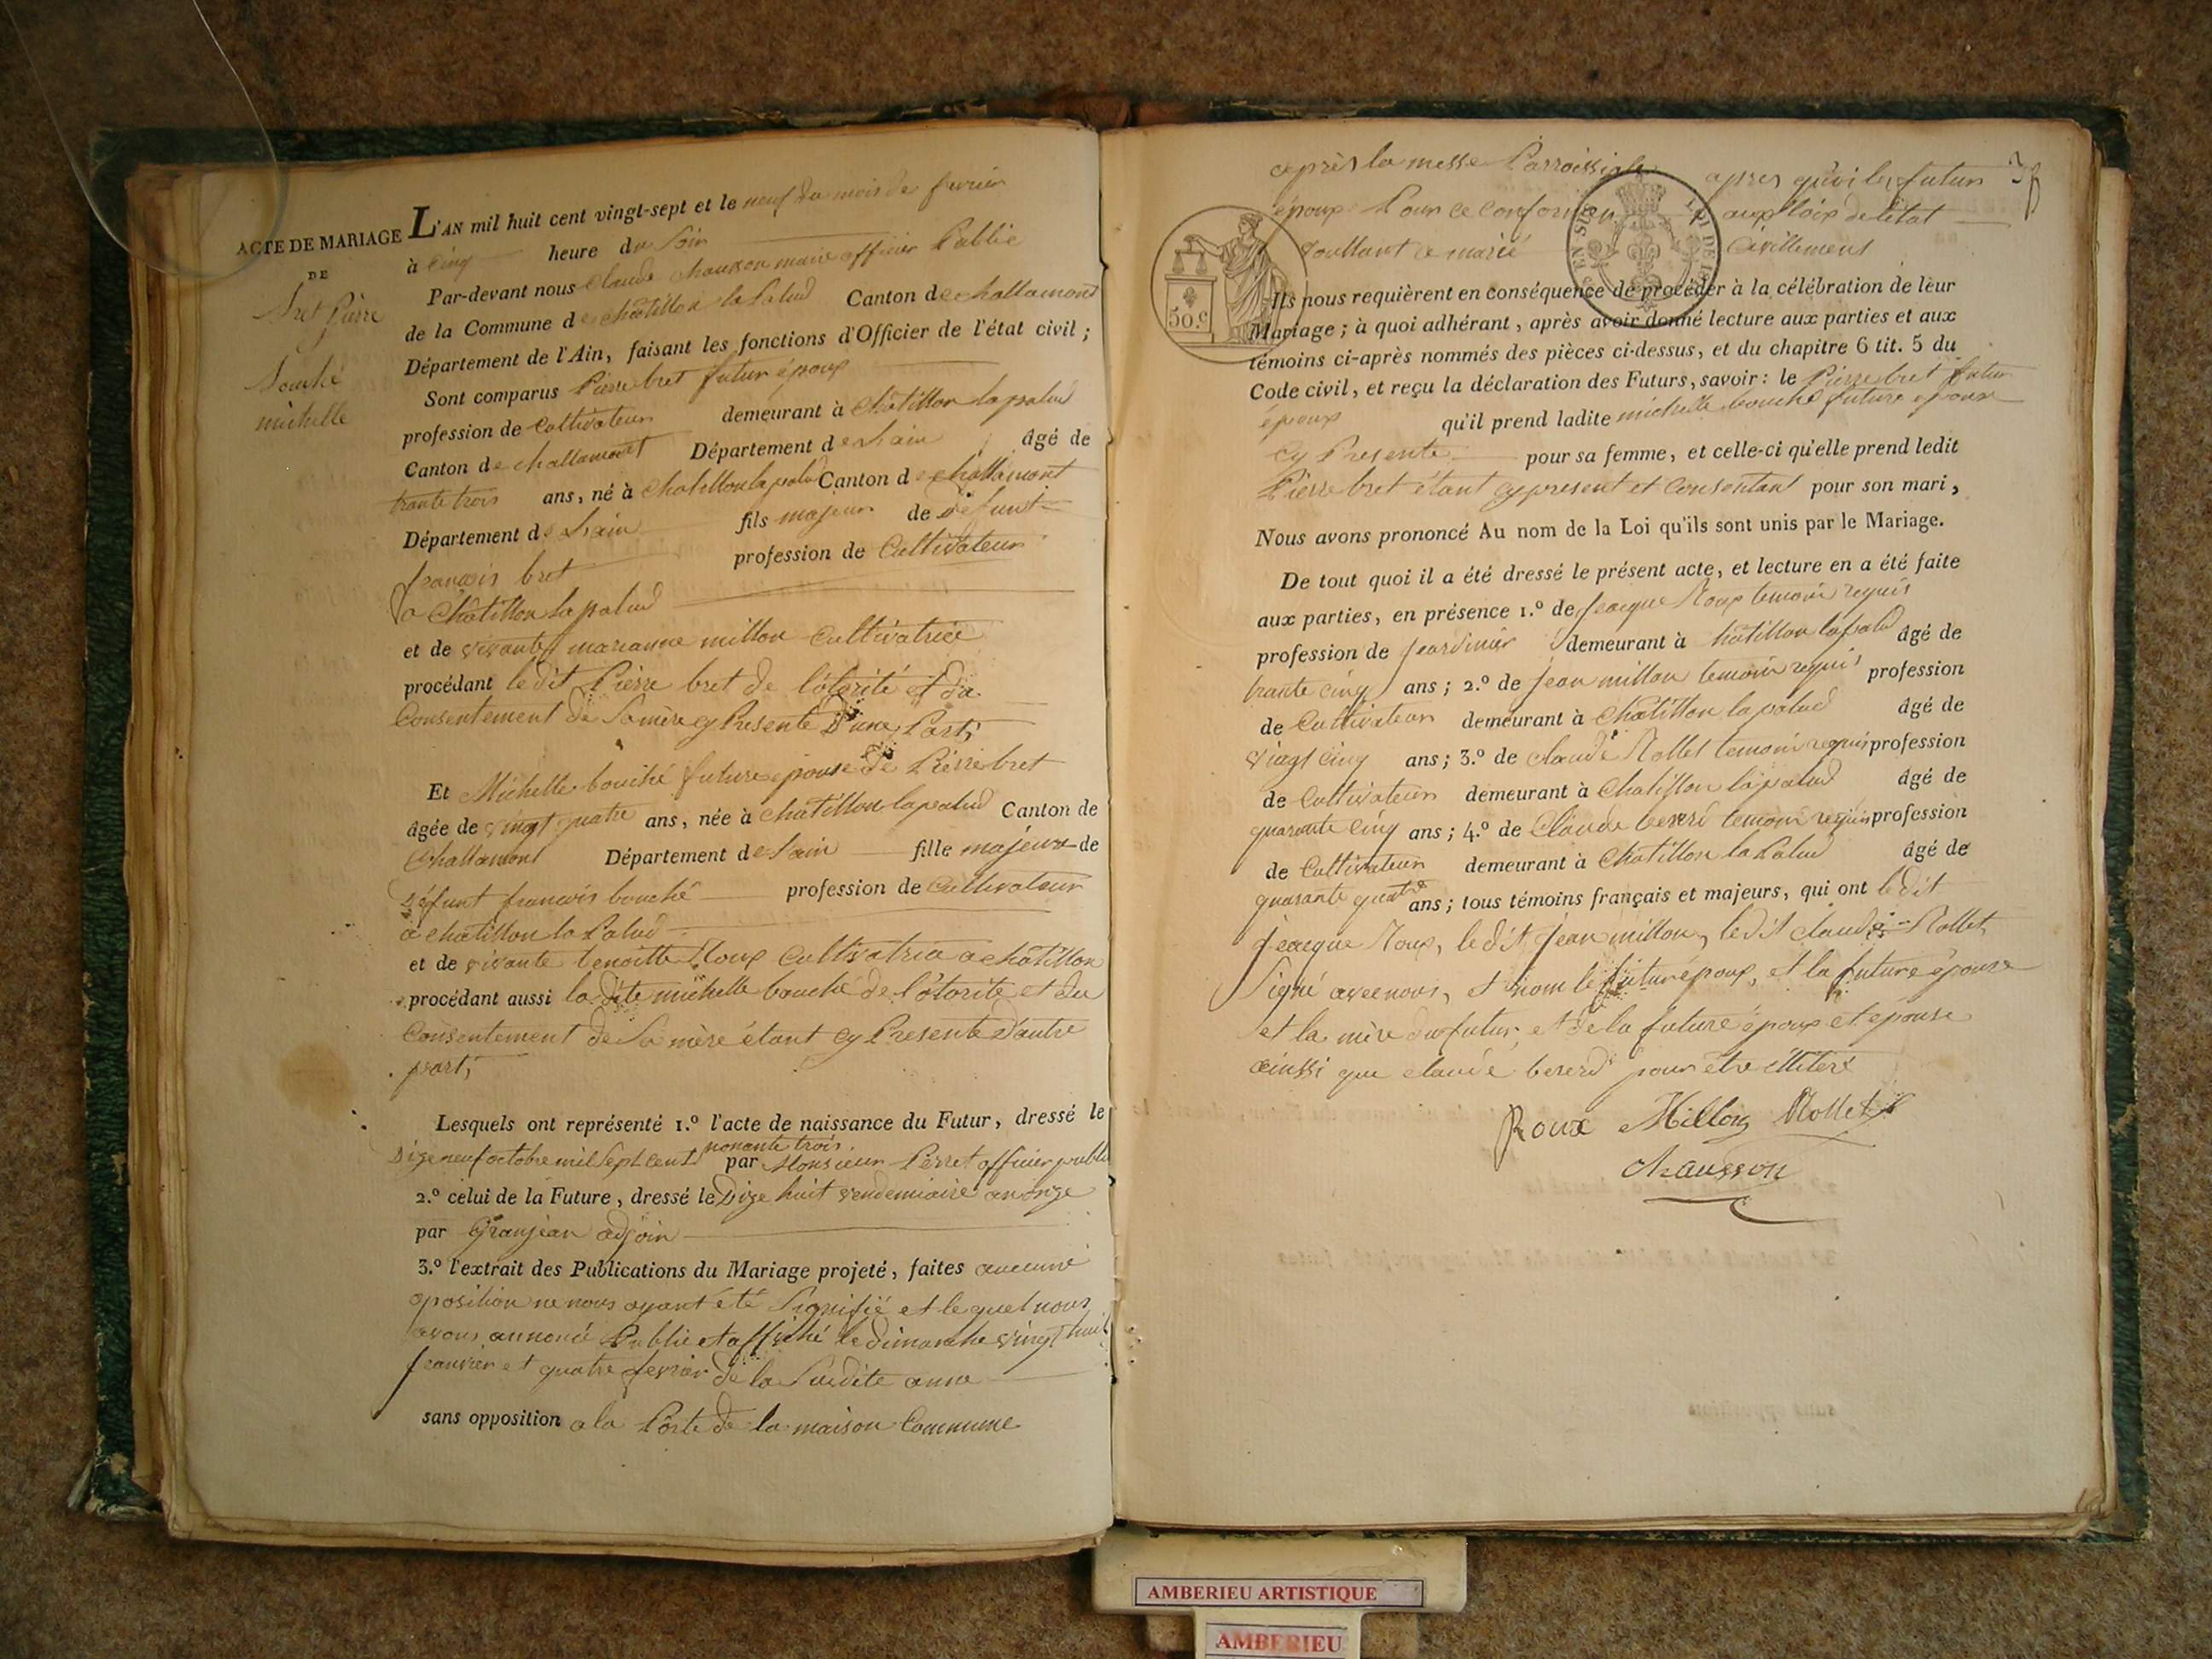 ACTE DE MARIAGE
DE
Bret Pierre
Bouché
michelle
L'AN mil huit cent vingt-sept et le neuf du mois de fevrier
à cinq heure du Soir
Par-devant nous Claude chausson maire officier Public
de la Commune de châtillon la Palud Canton de challamont
Département de l'Ain, faisant les fonctions d'Officier de l'état civil ;
Sont comparus Pierre bret futur époux
profession de Cultivateur demeurant à Châtillon lapalud
Canton de challamont Département de Lain âgé de
trante trois ans, né à chatillon lapalud Canton de challamont
Département de Lain fils majeur de défunt
françois bret profession de Cultivateur
a Châtillon lapalud
et de vivante marianne millon Cultivatrice
procédant le dit Pierre bret de lôtorité et du
Consentement de Sa mère cy Presente D'une Part;
Et Michelle bouché future epouse de Pierre bret
âgée de vingt quatre ans, née à châtillon lapalud Canton de
Challamont Département de Lain fille majeure de
défunt francois bouché profession de Cultivateur
a chatillon la Palud
et de vivante benoitte Roux Cultivatrice a châtillon
procédant aussi la dite michelle bouché de l'ôtorite et du
Consentement de Sa mère étant cy Presente D'autre
part;
Lesquels ont représenté 1.º l'acte de naissance du Futur, dressé le
Dize neuf octobre mil Sept Cent nonante trois par Monsieur Perret officier public
2.º celui de la Future, dressé le Dize huit vendemiaire an onze
par Granjean adjoin
3.º l'extrait des Publications du Mariage projeté, faites aucune
oposition ne nous ayant été Signifié et le quel nous
avons annoncé Publié et affiché le dimanche vingt huit
Janvier et quatre fevrier de la Susdite anné
sans opposition a la Porte de la maison Commune
après la messe Parroissiale apres quoi les futur
époux Pour ce conformer aux loix de létat
voullant ce marié Civillement
50.c
Ils nous requièrent en conséquence de procéder à la célébration de leur
Mariage ; à quoi adhérant, après avoir donné lecture aux parties et aux
témoins ci-après nommés des pièces ci-dessus, et du chapitre 6 tit. 5 du
Code civil, et reçu la déclaration des Futurs, savoir : le Pierre bret futur
époux qu'il prend ladite michelle bouché future epouse
cy Presente pour sa femme, et celle-ci qu'elle prend ledit
Pierre bret étant cy present et Consentant pour son mari,
Nous avons prononcé Au nom de la Loi qu'ils sont unis par le Mariage.
De tout quoi il a été dressé le présent acte, et lecture en a été faite
aux parties, en présence 1.º de Jeacque Roux temoin requis
profession de Jeardinier demeurant à châtillon lapalud âgé de
trante cinq ans ; 2.º de Jean millon temoin requis profession
de Cultivateur demeurant à Châtillon la palud âgé de
vingt cinq ans ; 3.º de claude Rollet temoin requis profession
de Cultivateur demeurant à Chatillon lapalud âgé de
quarante cinq ans ; 4.º de Claude bererd temoin requis profession
de Cultivateur demeurant à Chatillon la Palud âgé de
quarante quatre ans ; tous témoins français et majeurs, qui ont le dit
Jeacque Roux, le dit Jean millon, le dit claude Rollet
Signé avec nous, et nom le futur époux, et la future épouse
et la mère du futur, et de la future époux et épouse
ainssi que claude bererd pour être illiteré
Roux Millon Rollet
chausson
AMBERIEU ARTISTIQUE
AMBERIEU